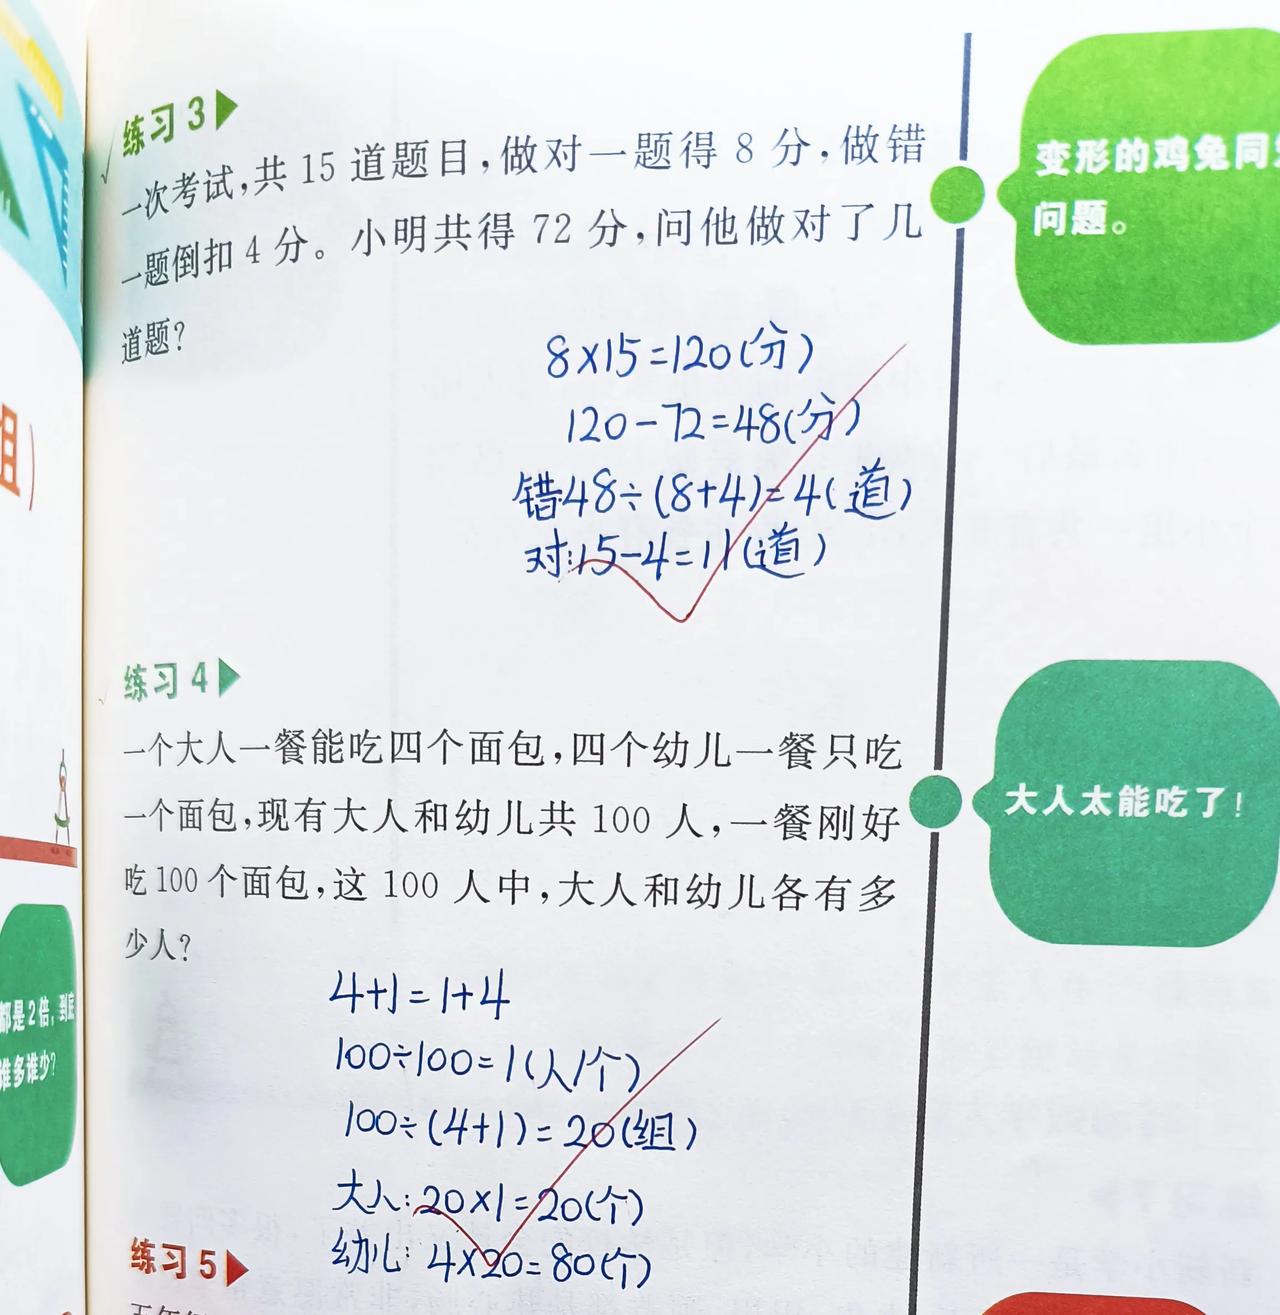 练习3
一次考试,共15道题目,做对一题得8分,做错
一题倒扣4分。小明共得72分,问他做对了几
道题?
变形的鸡兔同
问题。
8×15=120(分)
120-72=48(分)
错48÷(8+4)=4(道)
对:15-4=11(道)
练习4
一个大人一餐能吃四个面包,四个幼儿一餐只吃
一个面包,现有大人和幼儿共100人,一餐刚好
吃100个面包,这100人中,大人和幼儿各有多
少人?
大人太能吃了!
4+1=1+4
100÷100=1(人/个)
100÷(4+1)=20(组)
大人:20×1=20(个)
幼儿:4×20=80(个)
练习5
都是2倍,到底
谁多谁少?